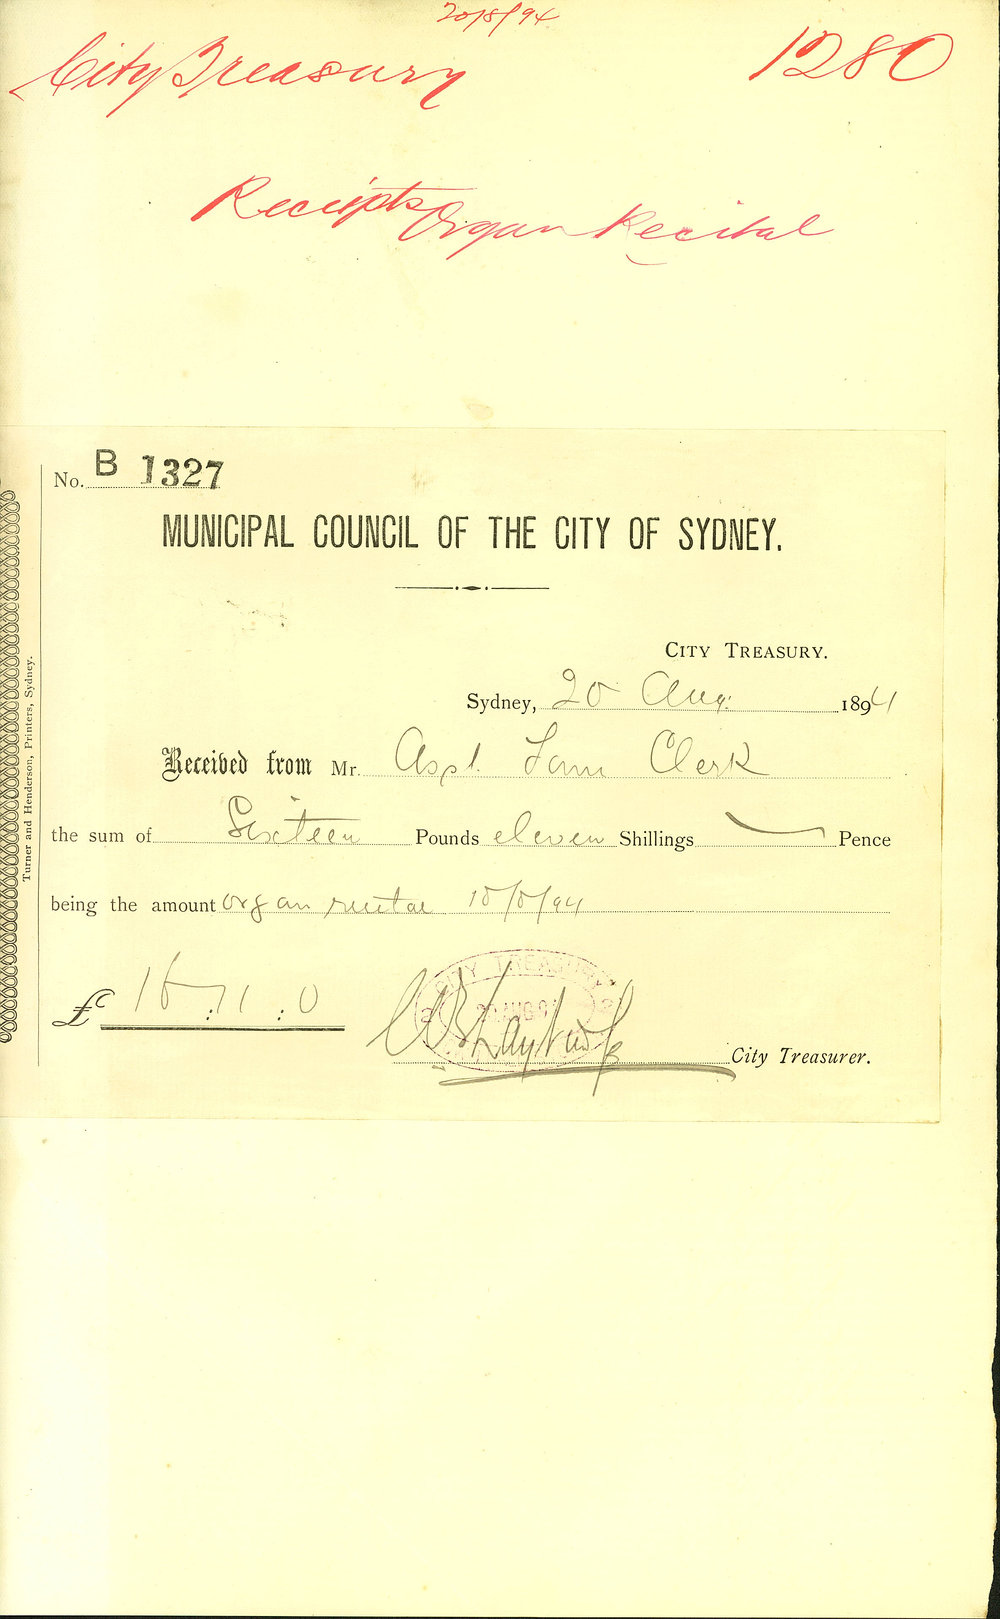 20/8/94
City Treasury 1280
Receipts Organ Recital
No. B 1327
MUNICIPAL COUNCIL OF THE CITY OF SYDNEY.
CITY TREASURY.
Sydney, 20 Aug. 1894
Received from Mr. Asst. Town Clerk
the sum of Sixteen Pounds eleven Shillings — Pence
being the amount organ recital 18/8/94
£ 16 : 11 : 0
City Treasurer.
CITY TREASURY
20 AUG 94
Turner and Henderson, Printers, Sydney.